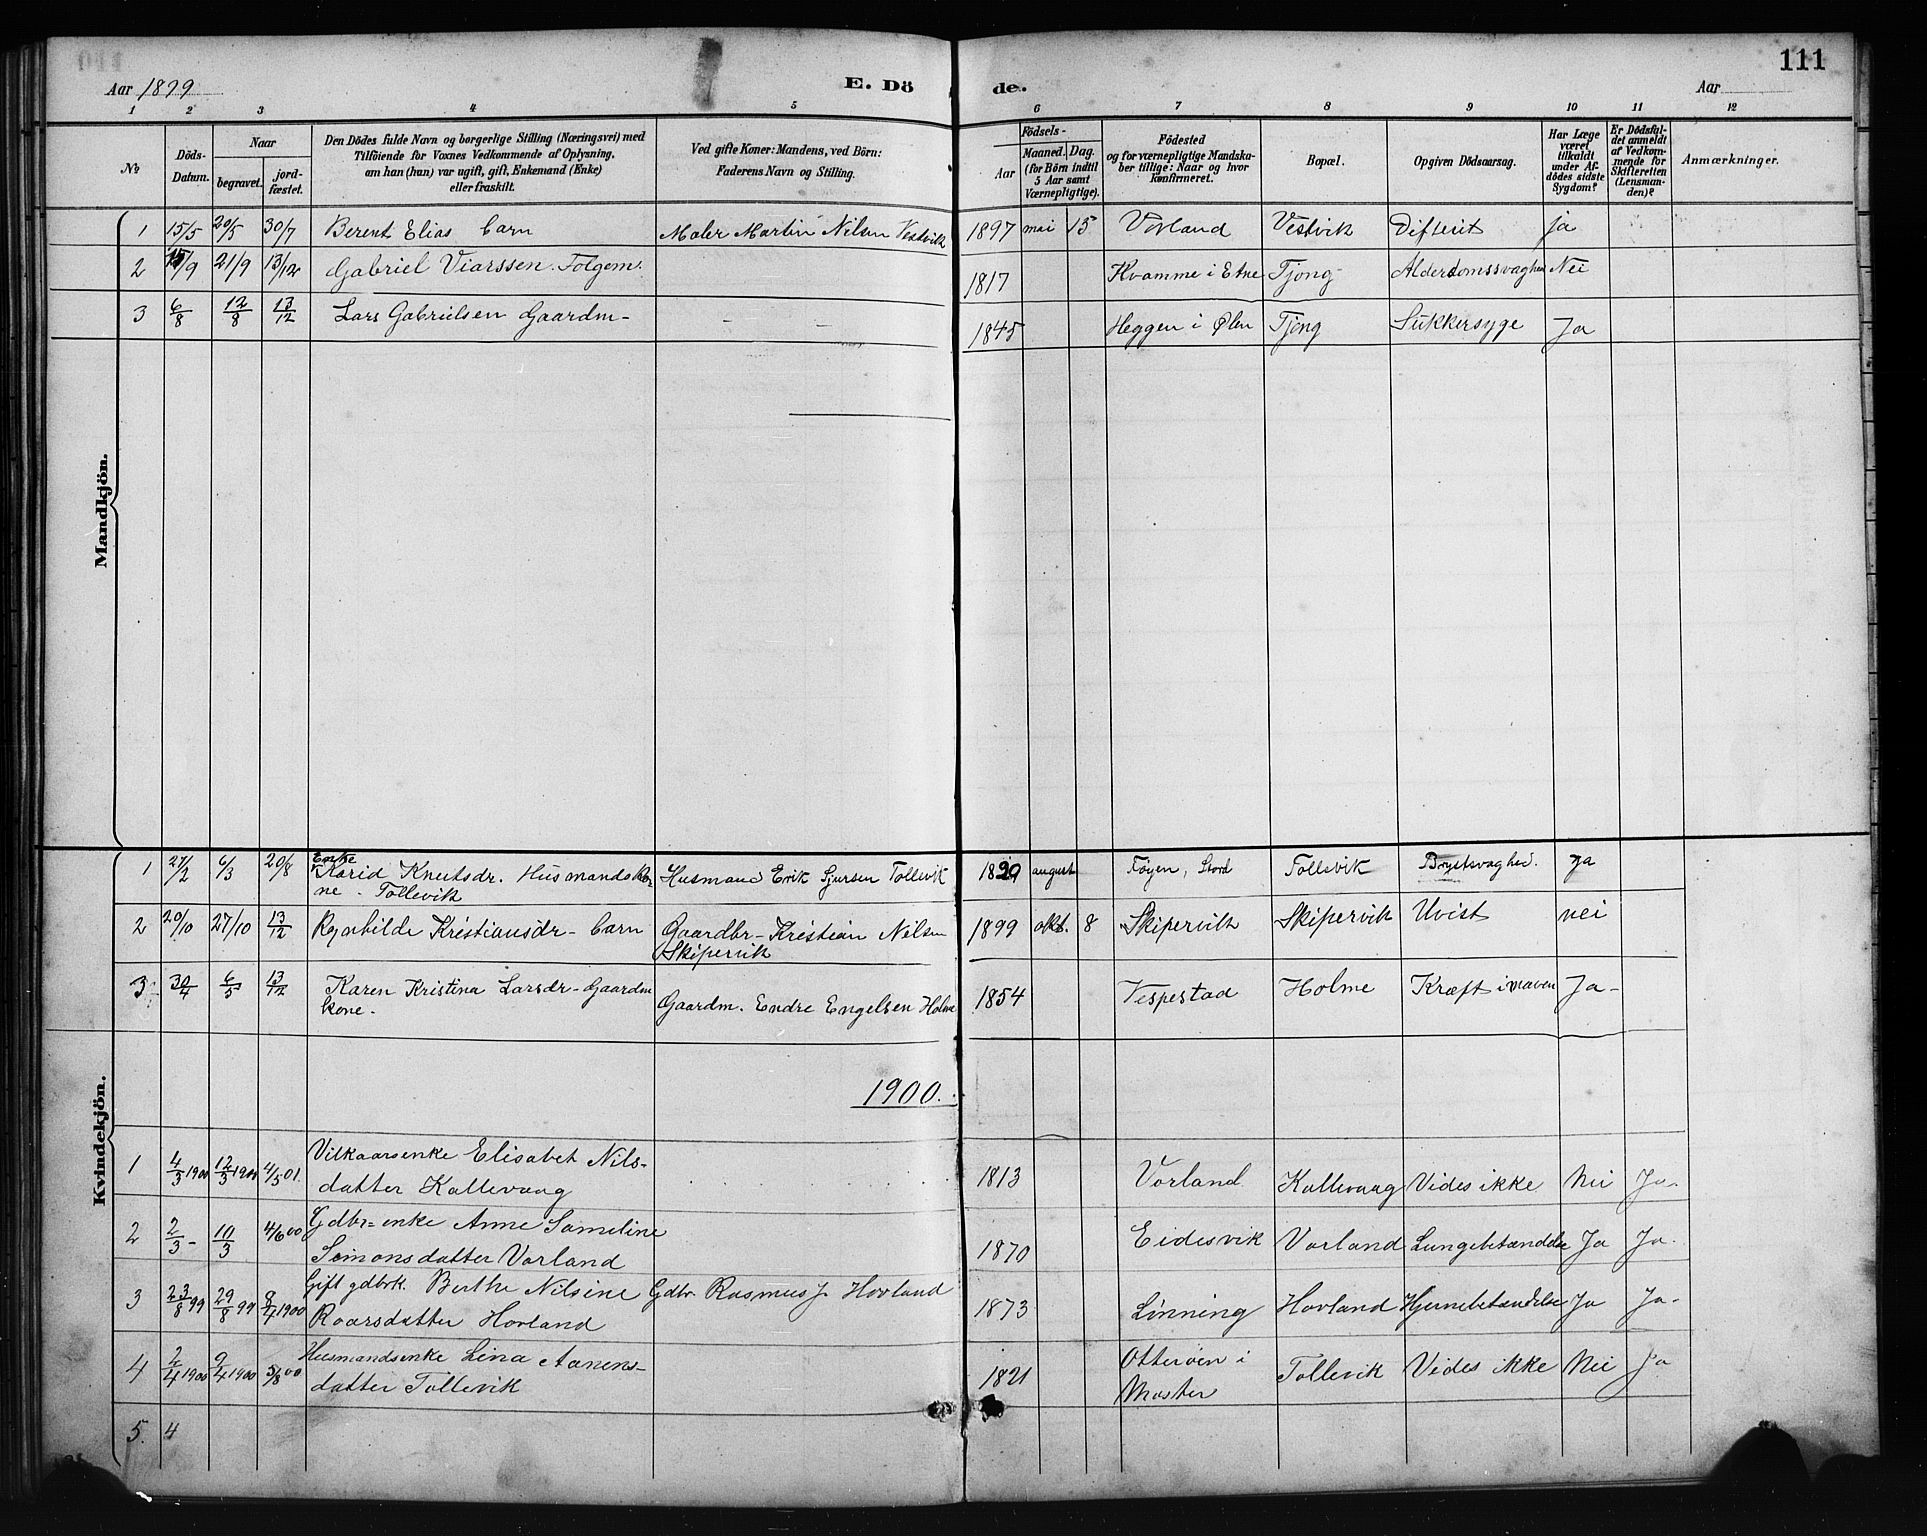 111
Aar 1899
E. Dö de.
Aar
1 2 3 4 5 6 7 8 9 10 11 12
No
Döds-Datum.
Naar
begravet.
jord-fæstet.
Den Dödes fulde Navn og borgerlige Stilling (Næringsvei) med
Tilföiende for Voxnes Vedkommende af Oplysning,
om han (han) var ugift, gift, Enkemand (Enke)
eller fraskilt.
Ved gifte Koner: Mandens, ved Börn:
Faderens Navn og Stilling.
Födsels-
Aar
Maaned. Dag.
(for Börn indtil
5 Aar samt
Værnepligtige).
Födested
og for værnepligtige Mandska-
ber tillige: Naar og hvor
konfirmeret.
Bopæl.
Opgiven Dödsaarsag.
Har Læge
været
tilkaldt
under Af-
dödes sidste
Sygdom?
Er Dödsfal-
det anmeldt
af Vedkom-
mende for
Skifteretten
(Lensman-
den)?
Anmærkninger.
Mandkjön.
1 15/5 20/5 30/7 Berent Elias Barn Maler Martin Nilsen Vestvik 1897 mai 15 Vorland Vestvik Difterit Ja
2 15/9 21/9 13/12 Gabriel Viarssen Folgem. 1817 Kvamme i Etne Tjong Alderdomssvaghed Nei
3 6/8 12/8 13/12 Lars Gabrielsen Gaardm- - - 1845 Heggen i Ølen Tjong Sukkersyge Ja
Kvindekjön.
Enke
1 27/2 6/3 20/8 Karid Knutsdr. Husmandsko- Husmand Erik Sjursen Tollevik 1820 august Föyen, Stord Tollevik Brystsvaghed. ja
ne - Tollevik
2 20/10 27/10 13/12 Ragnhilde Kristiansdr- Barn Gaardbr- Kristian Nilsen 1899 okt. 8 Skipervik Skipervik Uvist nei
Skipervik
3 30/4 6/5 13/12 Karen Kristina Larsdr- Gaardm Gaardm. Endre Engelsen Holme 1854 Vespestad Holme Kræft i maven Ja-
kone-
1900.
1 4/3 1900 12/3 1900 4/5 01. Vilkaarsenke Elisabet Nils- 1813 Vorland. Kallevaag Vides ikke Nei Ja-
datter Kallevaag
2 2/3 - 10/3 4/6 00 Gdbr-enke Anne Sameline 1870 Eidesvik Vorland Lungebetændelse Ja Ja-
Simonsdatter Vorland
3 23/8 99 29/8 99 8/4 1900 Gift gdbrk. Berthe Nilsine Gdbr. Rasmus J. Hovland 1873 Linning Hovland Hjernebetændelse Ja Ja-
Roarsdatter Hovland
4 2/4 1900 9/4 1900 5/8 00 Husmandsenke Lina Aanens- 1821 Otterøen i Tollevik Vides ikke Nei Ja
datter Tollevik Moster
5. 4